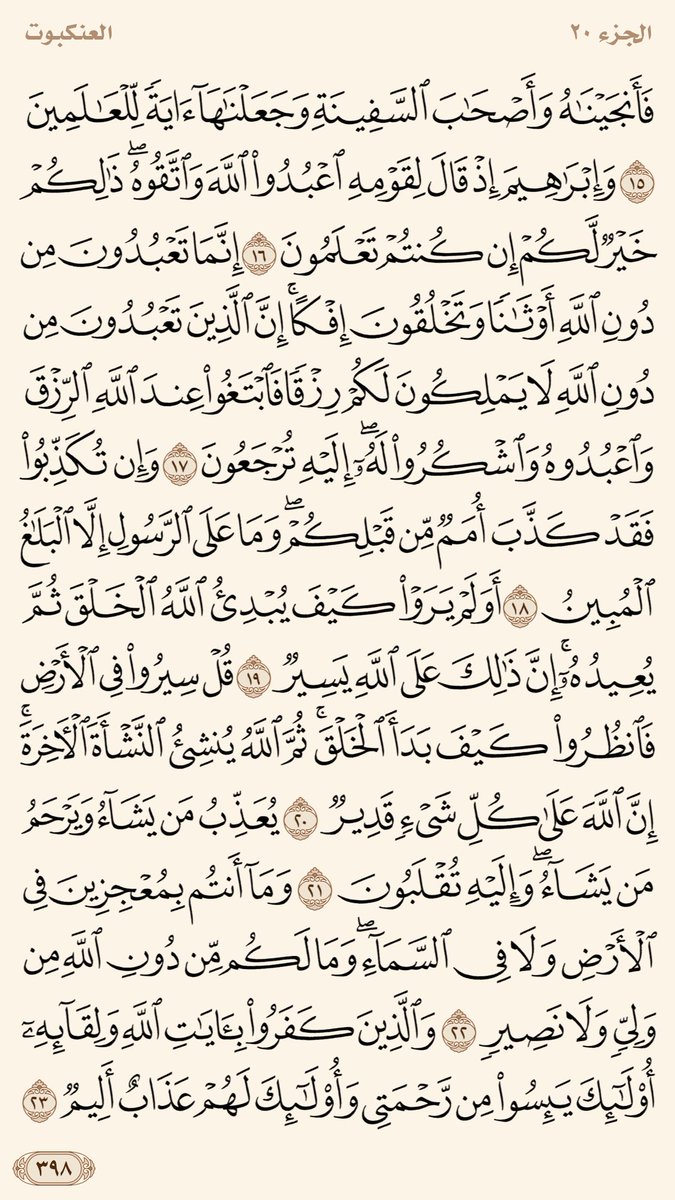 الجزء ٢٠
العنكبوت
فَأَنجَيْنَٰهُ وَأَصْحَٰبَ ٱلسَّفِينَةِ وَجَعَلْنَٰهَآ ءَايَةً لِّلْعَٰلَمِينَ
١٥ وَإِبْرَٰهِيمَ إِذْ قَالَ لِقَوْمِهِ ٱعْبُدُوا۟ ٱللَّهَ وَٱتَّقُوهُ ۖ ذَٰلِكُمْ
خَيْرٌ لَّكُمْ إِن كُنتُمْ تَعْلَمُونَ ١٦ إِنَّمَا تَعْبُدُونَ مِن
دُونِ ٱللَّهِ أَوْثَٰنًا وَتَخْلُقُونَ إِفْكًا ۚ إِنَّ ٱلَّذِينَ تَعْبُدُونَ مِن
دُونِ ٱللَّهِ لَا يَمْلِكُونَ لَكُمْ رِزْقًا فَٱبْتَغُوا۟ عِندَ ٱللَّهِ ٱلرِّزْقَ
وَٱعْبُدُوهُ وَٱشْكُرُوا۟ لَهُۥٓ ۖ إِلَيْهِ تُرْجَعُونَ ١٧ وَإِن تُكَذِّبُوا۟
فَقَدْ كَذَّبَ أُمَمٌ مِّن قَبْلِكُمْ ۖ وَمَا عَلَى ٱلرَّسُولِ إِلَّا ٱلْبَلَٰغُ
ٱلْمُبِينُ ١٨ أَوَلَمْ يَرَوْا۟ كَيْفَ يُبْدِئُ ٱللَّهُ ٱلْخَلْقَ ثُمَّ
يُعِيدُهُۥٓ ۚ إِنَّ ذَٰلِكَ عَلَى ٱللَّهِ يَسِيرٌ ١٩ قُلْ سِيرُوا۟ فِى ٱلْأَرْضِ
فَٱنظُرُوا۟ كَيْفَ بَدَأَ ٱلْخَلْقَ ۚ ثُمَّ ٱللَّهُ يُنشِئُ ٱلنَّشْأَةَ ٱلْـَٔاخِرَةَ ۚ
إِنَّ ٱللَّهَ عَلَىٰ كُلِّ شَىْءٍ قَدِيرٌ ٢٠ يُعَذِّبُ مَن يَشَآءُ وَيَرْحَمُ
مَن يَشَآءُ ۖ وَإِلَيْهِ تُقْلَبُونَ ٢١ وَمَآ أَنتُم بِمُعْجِزِينَ فِى
ٱلْأَرْضِ وَلَا فِى ٱلسَّمَآءِ ۖ وَمَا لَكُم مِّن دُونِ ٱللَّهِ مِن
وَلِىٍّ وَلَا نَصِيرٍ ٢٢ وَٱلَّذِينَ كَفَرُوا۟ بِـَٔايَٰتِ ٱللَّهِ وَلِقَآئِهِۦٓ
أُو۟لَٰٓئِكَ يَئِسُوا۟ مِن رَّحْمَتِى وَأُو۟لَٰٓئِكَ لَهُمْ عَذَابٌ أَلِيمٌ ٢٣
٣٩٨